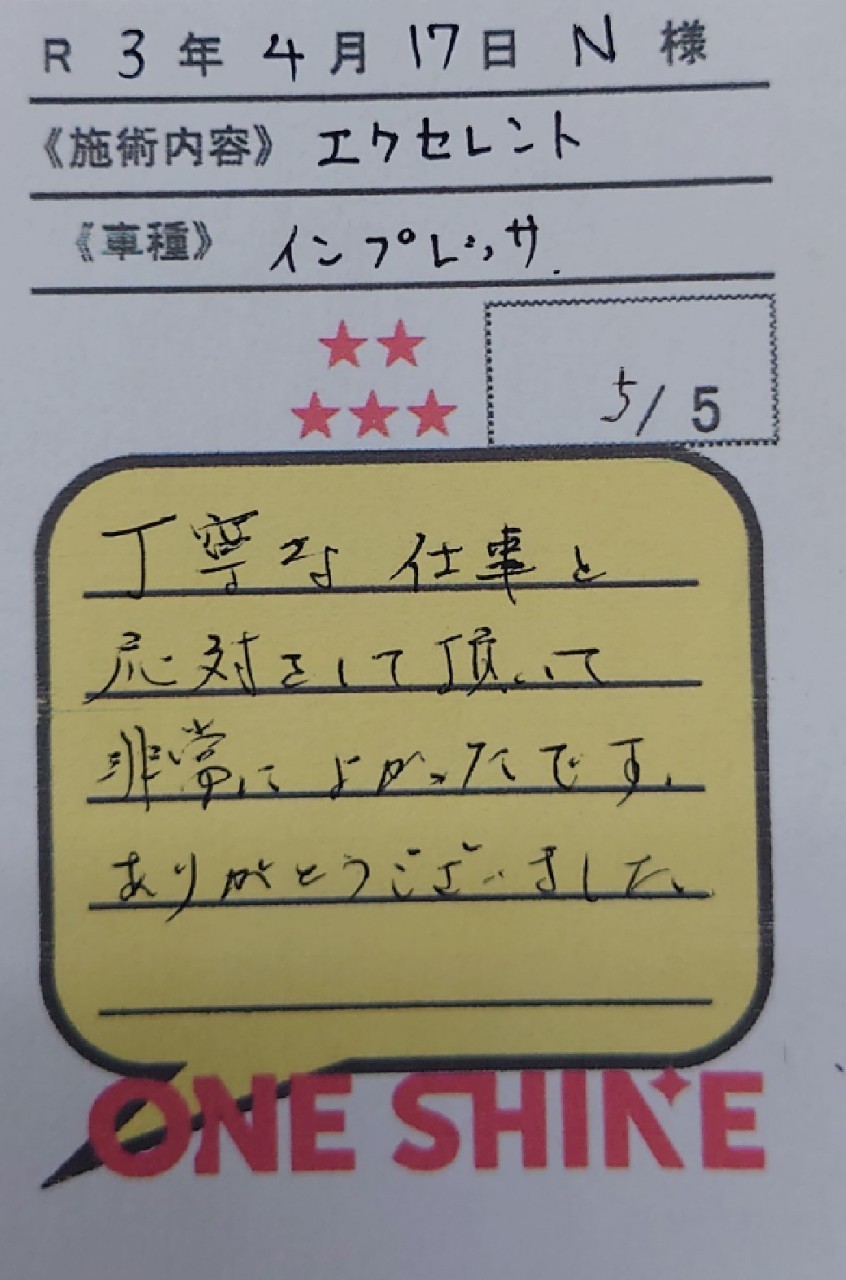 R 3年4月17日 N 様
《施術内容》エクセレント
《車種》インプレッサ.
5/5
丁寧な仕事と
応対をして頂いて
非常によかったです。
ありがとうございました。
ONE SHINE